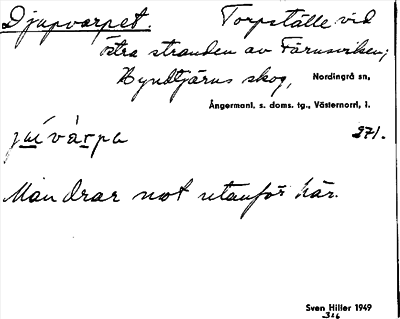 Djupvarpet. Torpställe vid
östra stranden av Färusviken;
Hyndtjärns skog, Nordingrå sn,
Ångermanl. s. doms. tg., Västernorrl. l.
371.
Man drar not utanför här.
Sven Hiller 1949
326